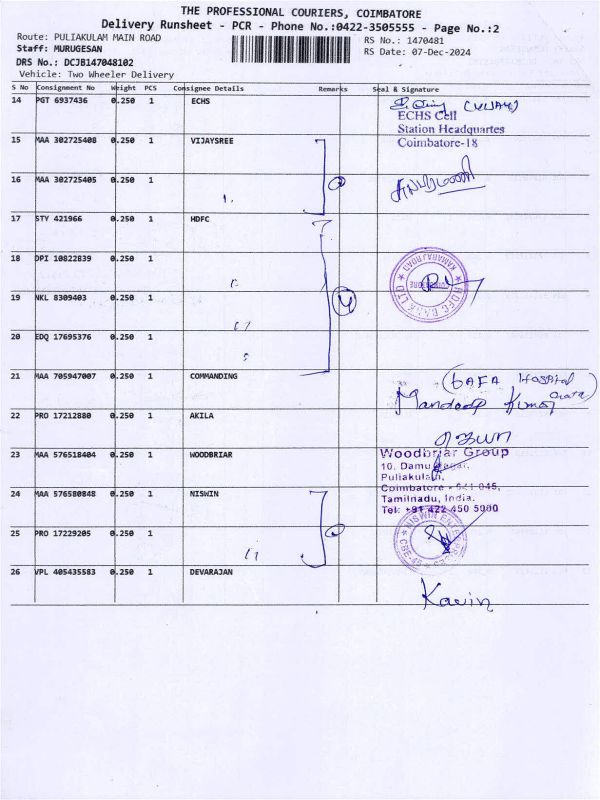 THE PROFESSIONAL COURIERS, COIMBATORE
Delivery Runsheet - PCR - Phone No.:0422-3505555 - Page No.:2
Route: PULIAKULAM MAIN ROAD RS No.: 1470481
Staff: MURUGESAN RS Date: 07-Dec-2024
DRS No.: DCJB147048102
Vehicle: Two Wheeler Delivery
S No Consignment No Weight PCS Consignee Details Remarks Seal & Signature
14 PGT 6937436 0.250 1 ECHS
ECHS Cell
Station Headquartes
Coimbatore-18
15 MAA 302725408 0.250 1 VIJAYSREE
16 MAA 302725405 0.250 1
17 STY 421966 0.250 1 HDFC
18 DPI 10822839 0.250 1
HDFC BANK LTD
KAMARAJ ROAD
19 NKL 8309403 0.250 1
4
20 EDQ 17695376 0.250 1
21 MAA 705947007 0.250 1 COMMANDING
Hospital
Mandeep Kumar
22 PRO 17212880 0.250 1 AKILA
23 MAA 576518404 0.250 1 WOODBRIAR
Woodbriar Group
10, Damu Nagar,
Puliakulam,
Coimbatore - 641 045,
Tamilnadu, India.
Tel: +91 422 450 5000
24 MAA 576580848 0.250 1 NISWIN
25 PRO 17229205 0.250 1
NISWIN ENTERPRISES
CBE-45
26 VPL 405435583 0.250 1 DEVARAJAN
Kavin